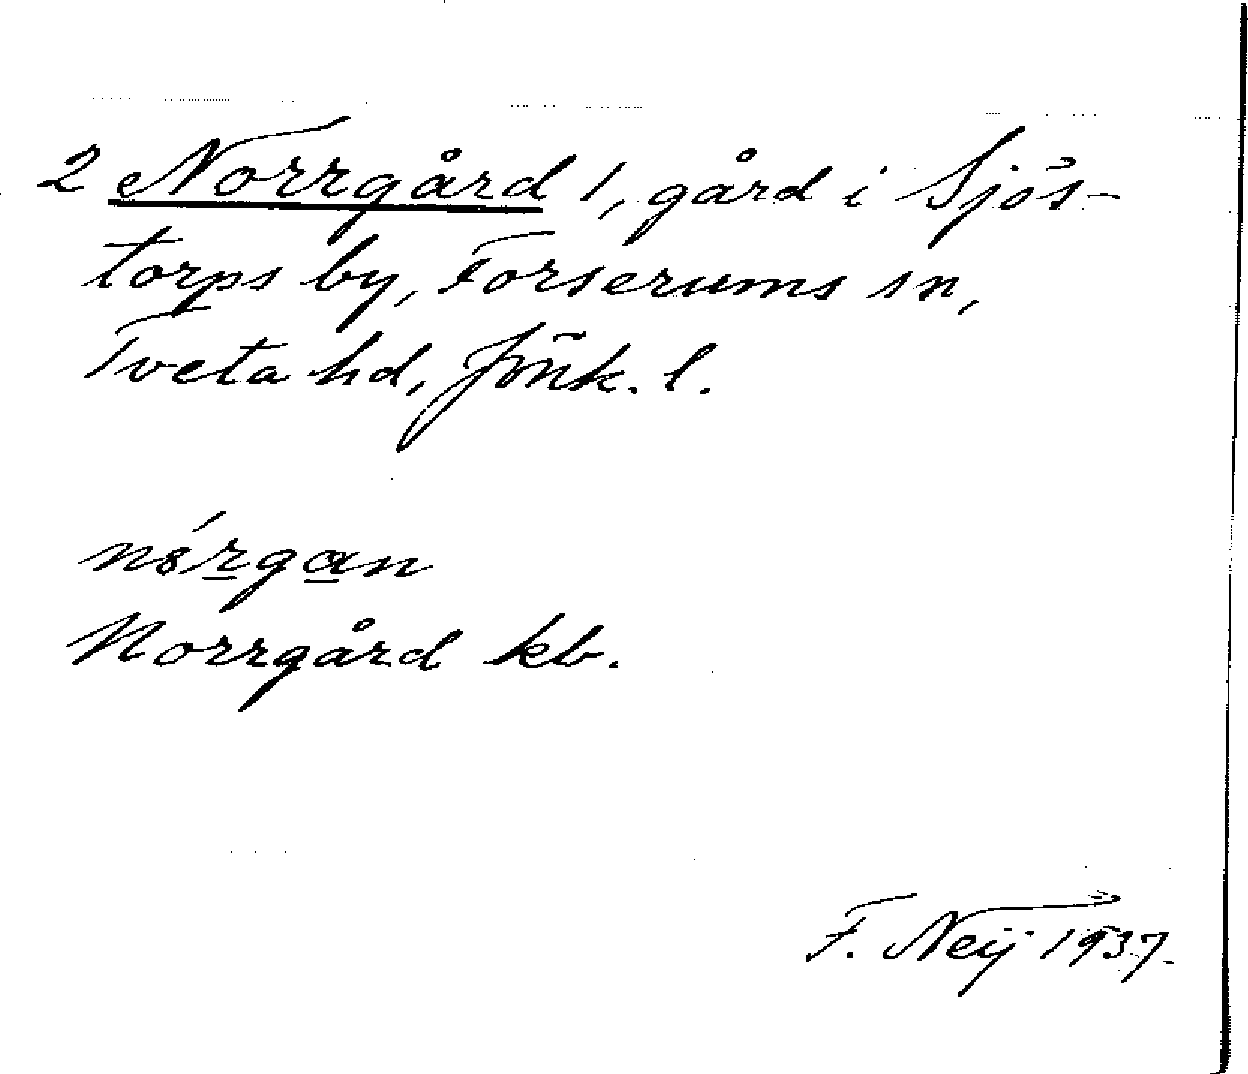 2 Norrgård 1, gård i Sjös-
torps by, Forserums sn,
Tveta hd, Jönk. l.
Norrgård kb.
F. Neij 1937